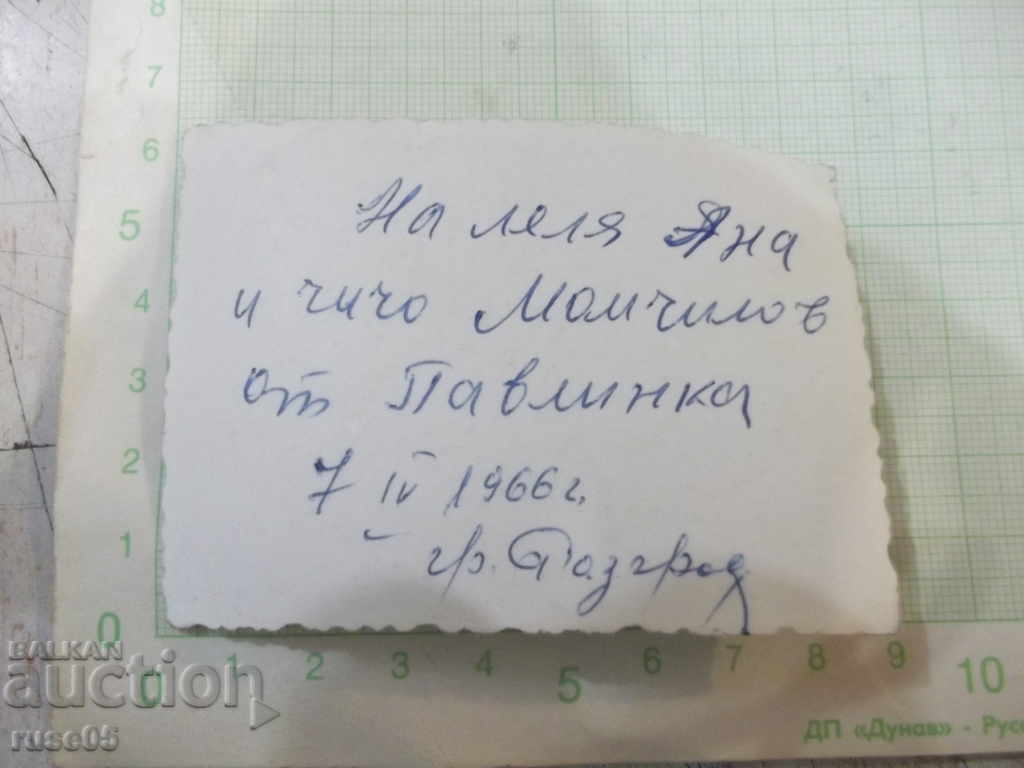 На леля Яна
и чичо Момчилов
от Павлинка
7 IV 1966 г.
гр. Разград
8
7
6
5
4
3
2
1
0
0 1 2 3 4 5 6 7 8 9 10
ДП «Дунав» - Русе
BALKAN
auction
ruse05